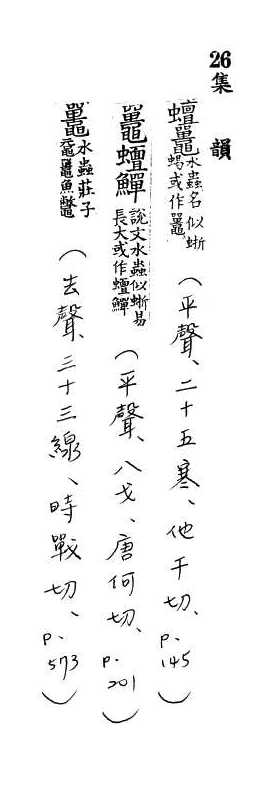 26集韻
蟺鼉水蟲名似蜥蜴或作鼉（平聲、二十五寒、他干切、p.145）
鼉蟺鱓說文水蟲似蜥易長大或作蟺鱓（平聲、八戈、唐何切、p.201）
鼉水蟲莊子黿鼉魚鼈（去聲、三十三線、時戰切、p.573）